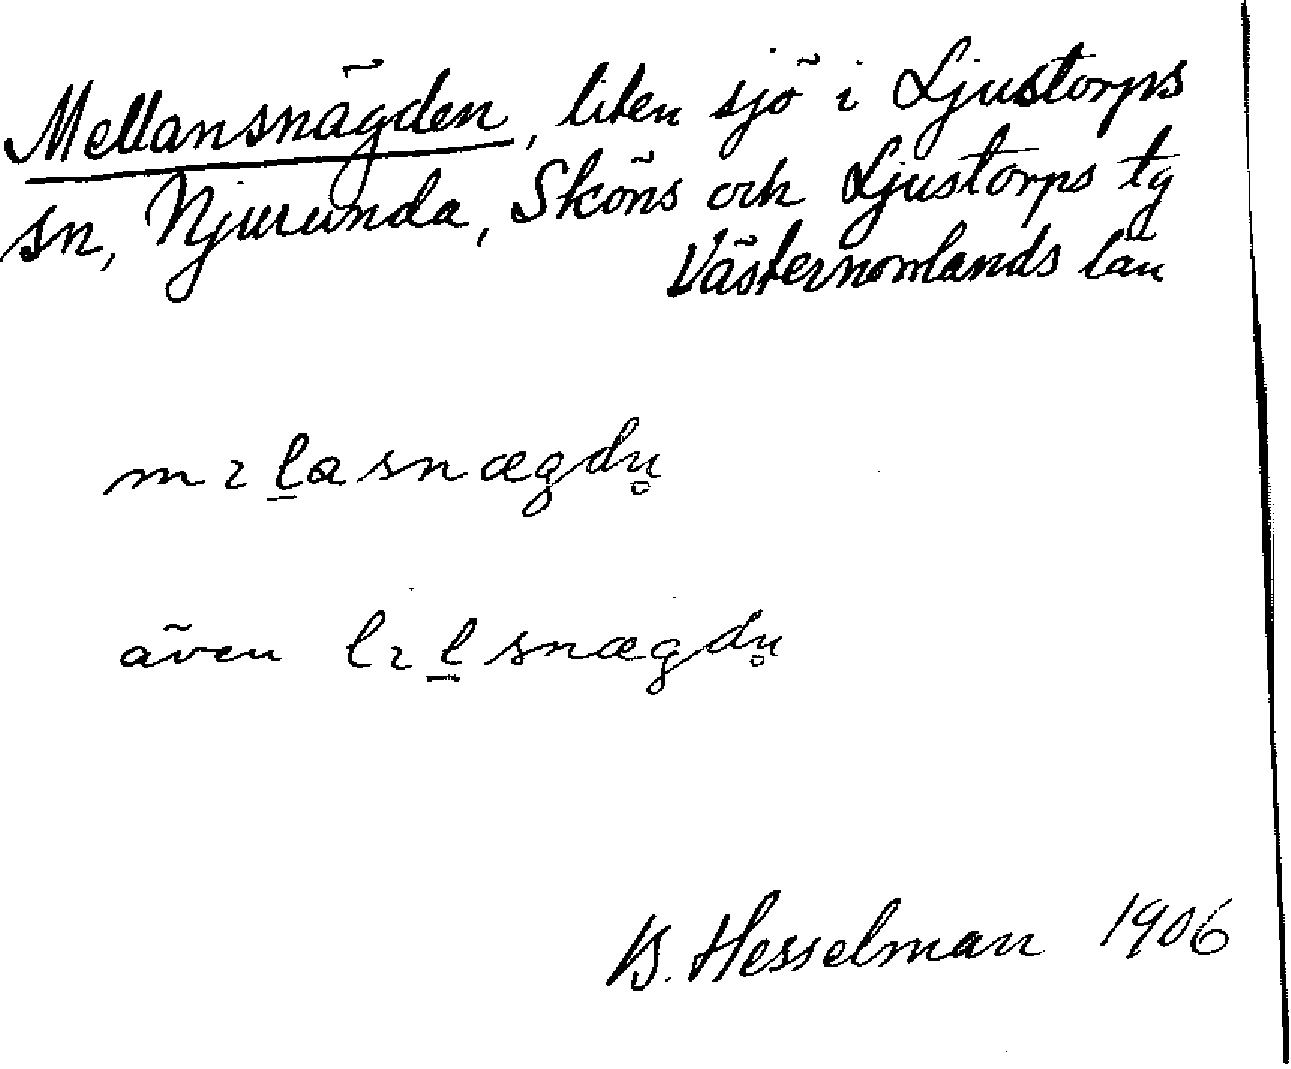 Mellansnägden, liten sjö i Ljustorps
sn, Njurunda, Sköns och Ljustorps tg
Västernorrlands län
mꝛl̠asnægdn̥
även lꝛl̠snægdn̥
B. Hesselman 1906